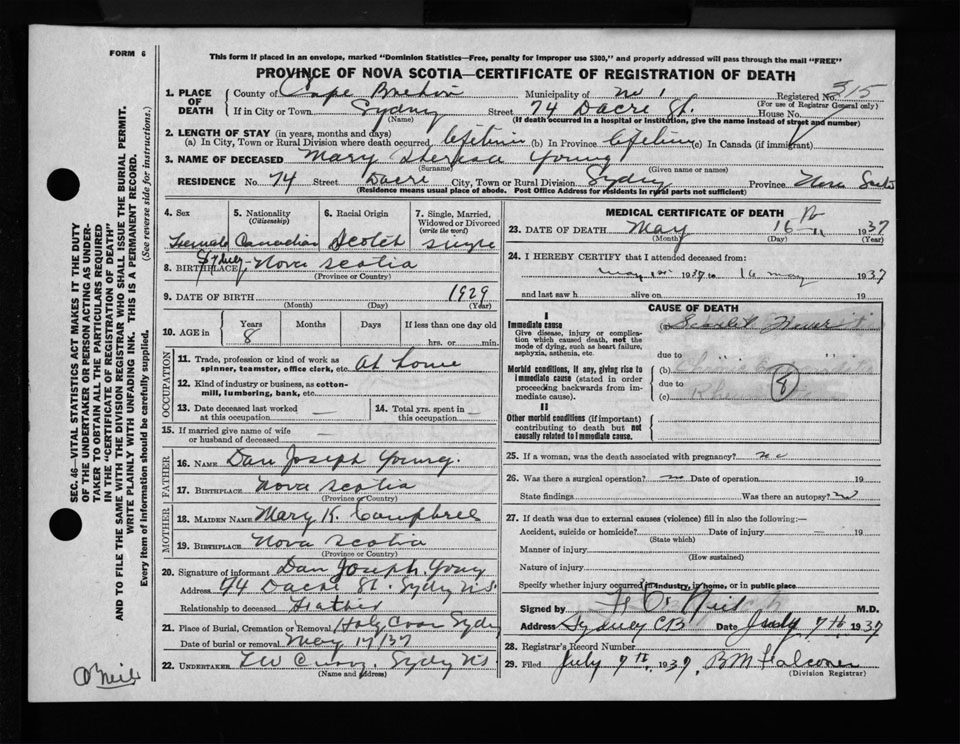 FORM 6
This form if placed in an envelope, marked "Dominion Statistics—Free, penalty for improper use $300," and properly addressed will pass through the mail "FREE"
PROVINCE OF NOVA SCOTIA—CERTIFICATE OF REGISTRATION OF DEATH
1. PLACE OF DEATH
County of Cape Breton Municipality of Registered No. 315
(For use of Registrar General only)
If in City or Town Sydney Street 74 Dacre St. House No.
(Name) (If death occurred in a hospital or institution, give the name instead of street and number)
2. LENGTH OF STAY (in years, months and days)
(a) In City, Town or Rural Division where death occurred lifetime (b) In Province lifetime (c) In Canada (if immigrant)
3. NAME OF DECEASED Mary Theresa Young
(Surname) (Given name or names)
RESIDENCE No. 74 Street Dacre City, Town or Rural Division Sydney Province Nova Scotia
(Residence means usual place of abode. Post Office Address for residents in rural parts not sufficient)
4. Sex Female
5. Nationality (Citizenship) Canadian
6. Racial Origin Scotch
7. Single, Married, Widowed or Divorced (write the word) single
8. BIRTHPLACE Sydney Nova Scotia
(Province or Country)
9. DATE OF BIRTH 1929
(Month) (Day) (Year)
10. AGE in Years Months Days If less than one day old
8 hrs. or min.
OCCUPATION
11. Trade, profession or kind of work as spinner, teamster, office clerk, etc. At home
12. Kind of industry or business, as cotton-mill, lumbering, bank, etc.
13. Date deceased last worked at this occupation —
14. Total yrs. spent in this occupation —
15. If married give name of wife or husband of deceased —
FATHER
16. NAME Dan Joseph Young.
17. BIRTHPLACE Nova Scotia
(Province or Country)
MOTHER
18. MAIDEN NAME Mary K. Campbell
19. BIRTHPLACE Nova Scotia
(Province or Country)
20. Signature of informant Dan Joseph Young
Address 74 Dacre St. Sydney N.S.
Relationship to deceased Father
21. Place of Burial, Cremation or Removal Holy Cross Sydney
Date of burial or removal May 17/37
22. UNDERTAKER T W Curry. Sydney N.S.
(Name and address)
MEDICAL CERTIFICATE OF DEATH
23. DATE OF DEATH May 16 1937
(Month) (Day) (Year)
24. I HEREBY CERTIFY that I attended deceased from:
May 1st 1937 to 16 May 1937
and last saw h alive on 19
CAUSE OF DEATH
I
Immediate cause
Give disease, injury or complication which caused death, not the mode of dying, such as heart failure, asphyxia, asthenia, etc.
Scarlet Fever
due to
Morbid conditions, if any, giving rise to immediate cause (stated in order proceeding backwards from immediate cause).
(b)
due to
(c)
8
II
Other morbid conditions (if important) contributing to death but not causally related to immediate cause.
25. If a woman, was the death associated with pregnancy? no
26. Was there a surgical operation? no Date of operation 19
State findings Was there an autopsy? no
27. If death was due to external causes (violence) fill in also the following:—
Accident, suicide or homicide? Date of injury — 19
(State which)
Manner of injury
(How sustained)
Nature of injury
Specify whether injury occurred in industry, in home, or in public place
Signed by O'Neil M.D.
Address Sydney CB Date July 7th 1937
28. Registrar's Record Number
29. Filed July 7th 1937 B M Falconer
(Division Registrar)
SEC. 46—VITAL STATISTICS ACT MAKES IT THE DUTY OF THE UNDERTAKER OR PERSON ACTING AS UNDERTAKER TO OBTAIN ALL THE PARTICULARS REQUIRED IN THE "CERTIFICATE OF REGISTRATION OF DEATH" AND TO FILE THE SAME WITH THE DIVISION REGISTRAR WHO SHALL ISSUE THE BURIAL PERMIT.
WRITE PLAINLY WITH UNFADING INK. THIS IS A PERMANENT RECORD.
Every item of information should be carefully supplied. (See reverse side for instructions.)
O'Neil